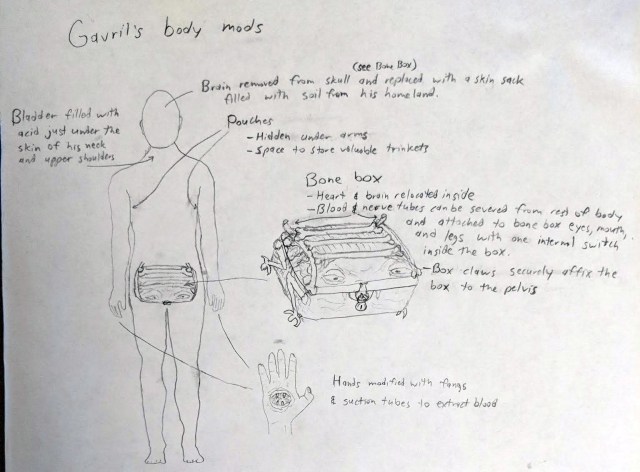 Gavril's body mods
(see Bone Box)
Brain removed from skull and replaced with a skin sack
filled with soil from his homeland.
Bladder filled with
acid just under the
skin of his neck
and upper shoulders
Pouches
- Hidden under arms
- Space to store valuable trinkets
Bone box
- Heart & brain relocated inside
- Blood & nerve tubes can be severed from rest of body
and attached to bone box eyes, mouth,
and legs with one internal switch
inside the box.
- Box claws securely affix the
box to the pelvis
Hands modified with fangs
& suction tubes to extract blood